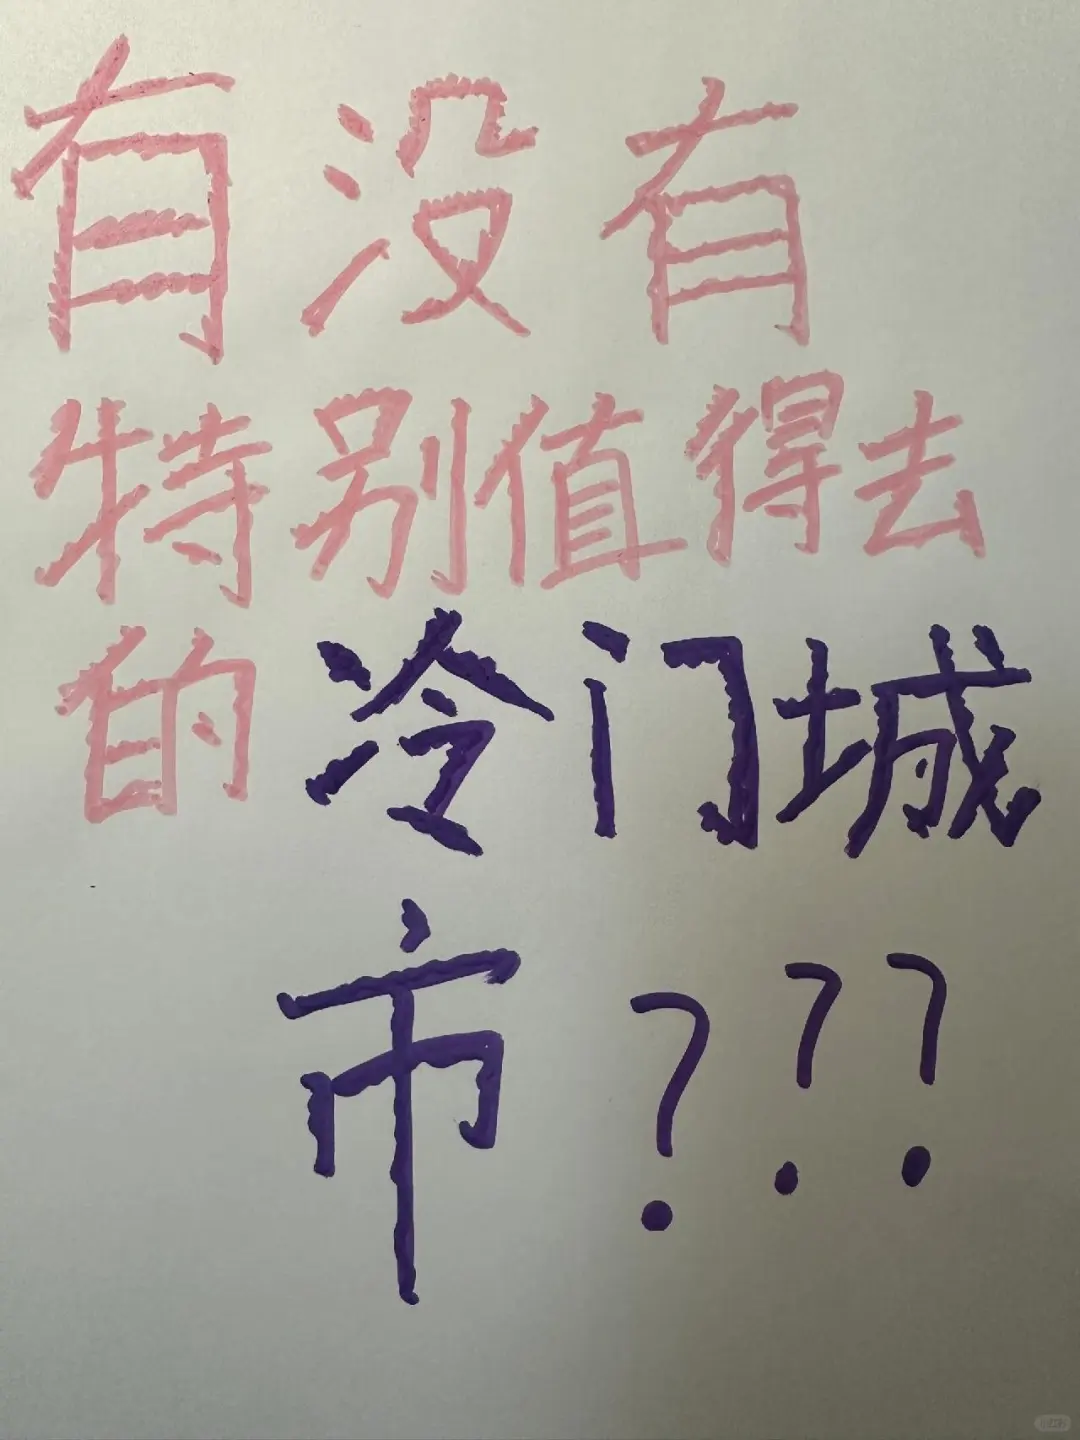 有没有
特别值得去
的冷门城
市???